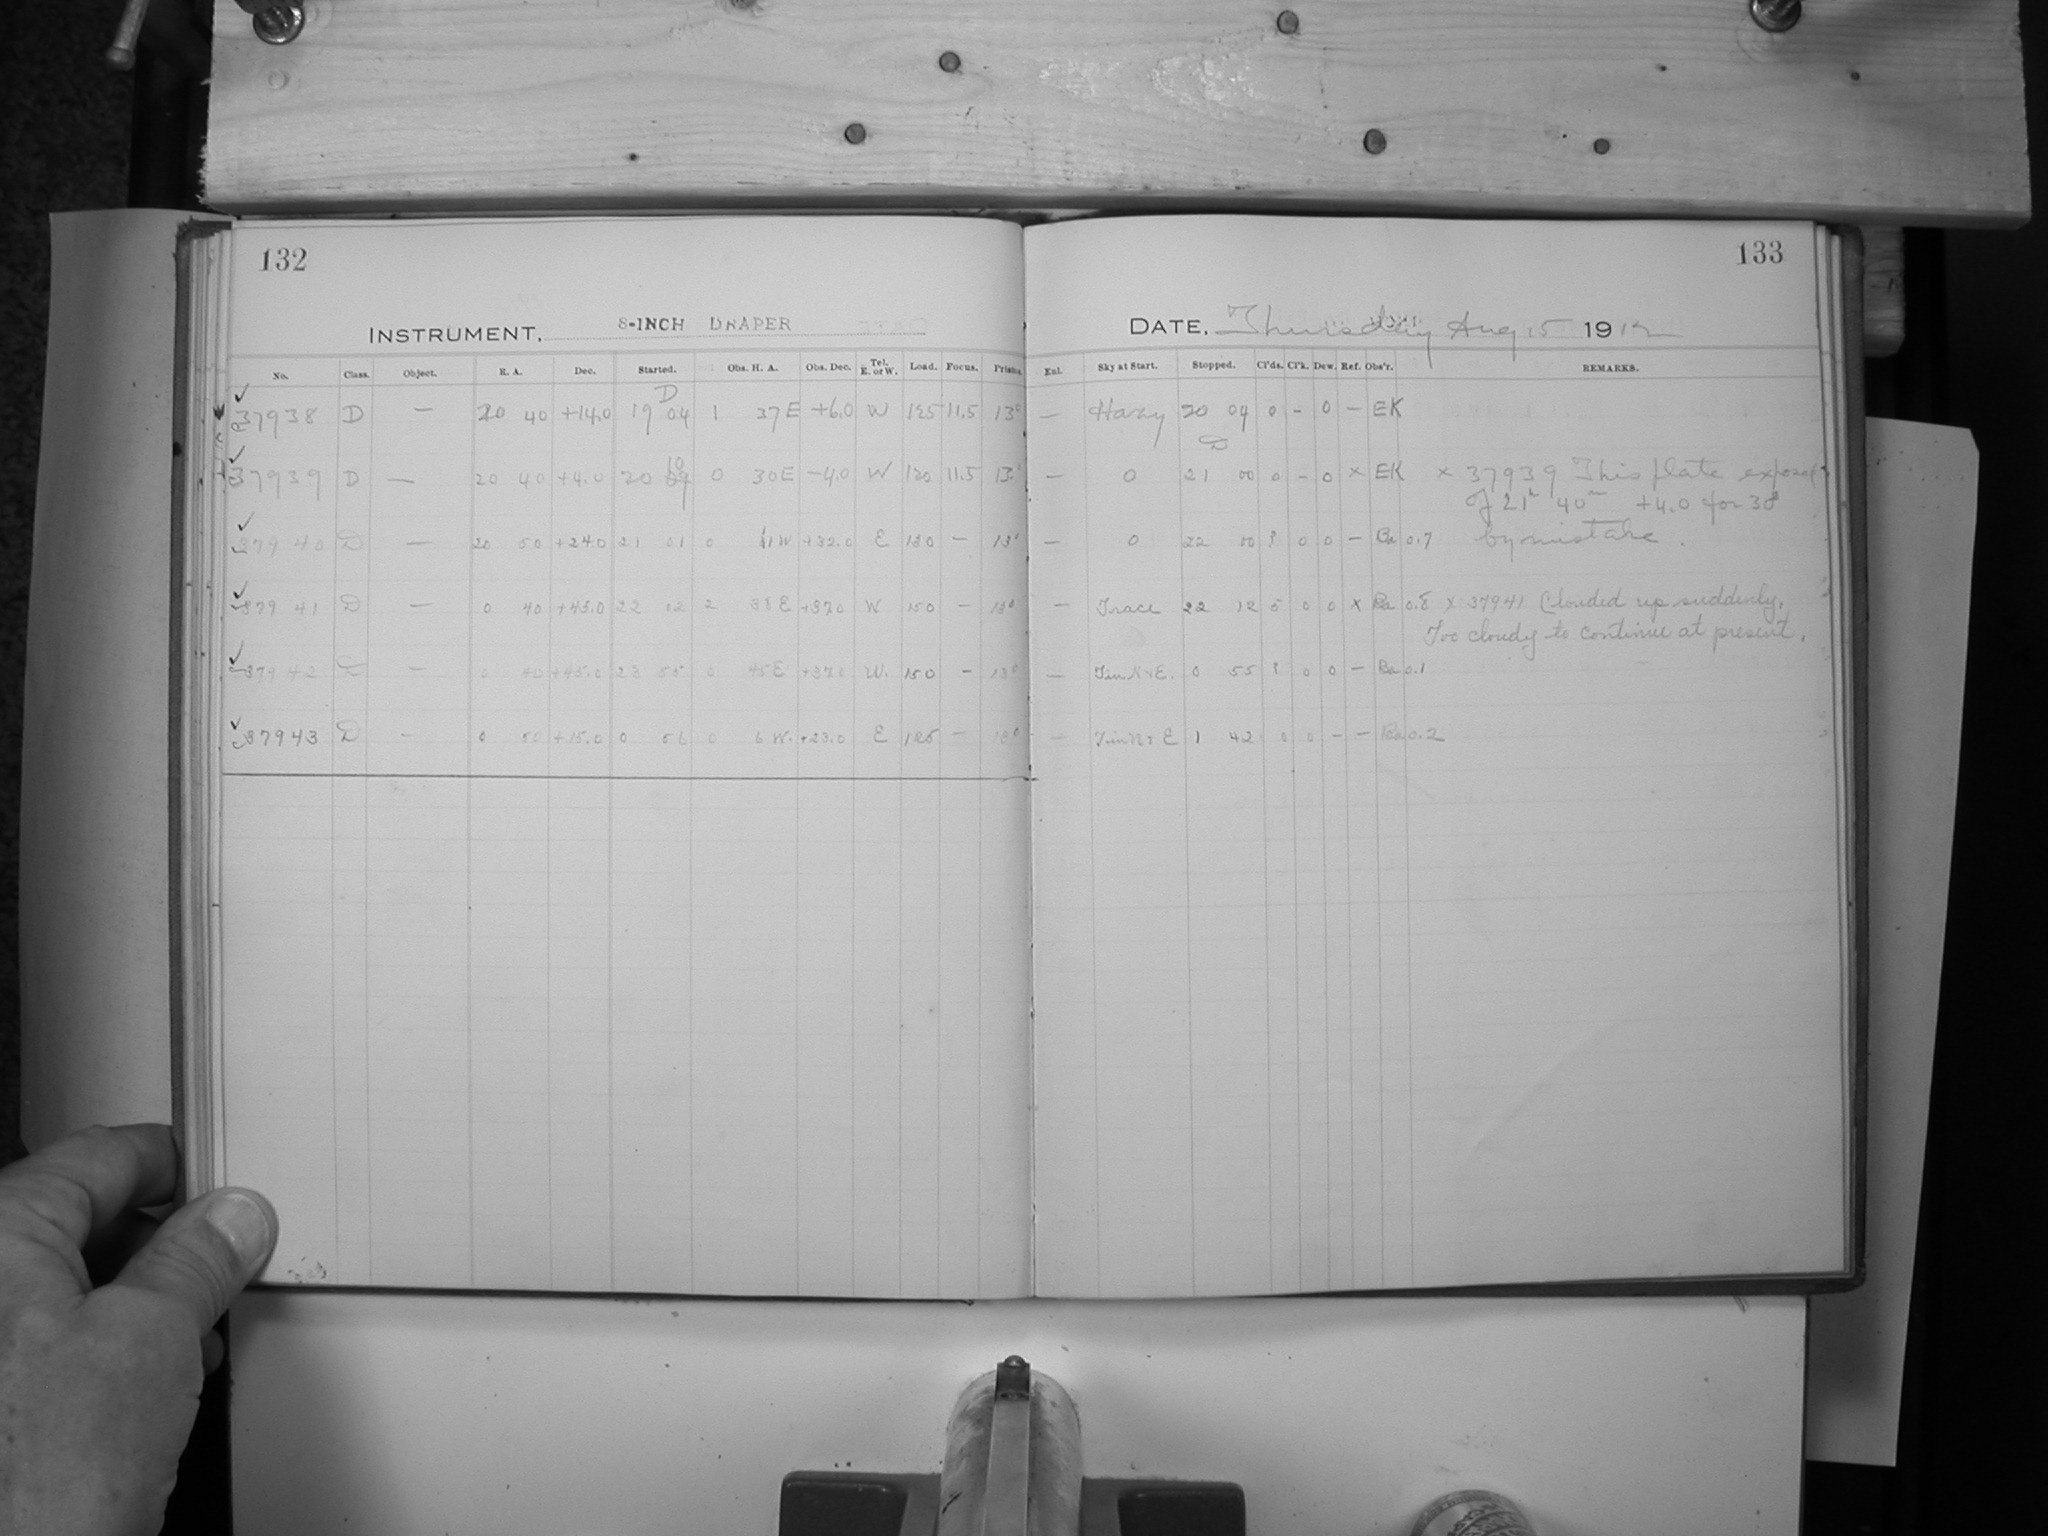 132
133
INSTRUMENT, 8-INCH DRAPER
DATE, Thursday Aug 15 1912
No. Class. Object. R. A. Dec. Started. Obs. H. A. Obs. Dec. Tel. E. or W. Load. Focus. Prisms. Enl. Sky at Start. Stopped. Cl'ds. Cl'k. Dew. Ref. Obs'r. REMARKS.
D
37938 D — 20 40 +14.0 19 04 1 37E +6.0 W 125 11.5 13° — Hazy 20 04 0 - 0 — EK
D
10
37939 D — 20 40 +4.0 20 09 0 30E -4.0 W 120 11.5 13° — 0 21 00 0 - 0 x EK x 37939 This plate exposed
of 21h 40m +4.0 for 30s
37940 D — 20 50 +24.0 21 01 0 11W +32.0 E 130 — 13° — 0 22 00 ? 0 0 — Ba 0.7 by mistake.
37941 D — 0 40 +45.0 22 02 2 38E +37.0 W 150 — 13° — Trace 22 12 5 0 0 x Ba 0.8 x 37941 Clouded up suddenly,
Too cloudy to continue at present.
37942 D — 0 40 +45.0 23 55 0 45E +37.0 W. 150 — 13° — Tin N+E. 0 55 ? 0 0 — Ba 0.1
37943 D — 0 50 +15.0 0 56 0 6 W. +23.0 E 125 — 13° — Tin N+E 1 42 0 0 — — Ba 0.2